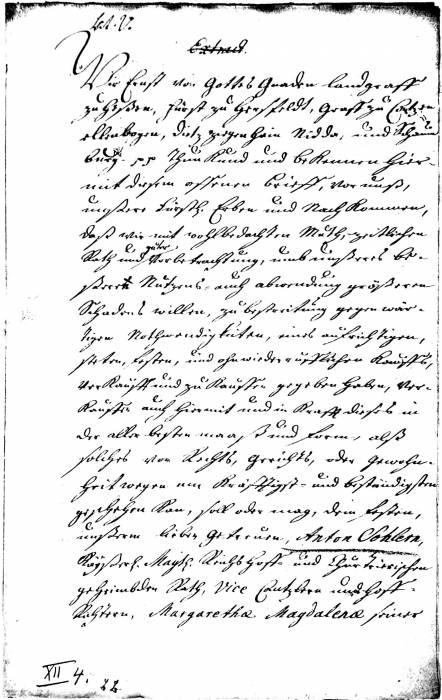 Lit. V.
Extract.
Wir Ernst von Gottes Gnaden Landgraff
zu Heßen, Fürst zu Herßfeldt, Graff zu Catzen
ellenbogen, Dietz Ziegenhain Nidda, und Schaum
burg pp Thun Kund und beKennen hier-
mit diesem offenen brieff, vor unß,
unßere Fürstl. Erben und NachKommen,
daß wir mit wohlbedachtem Muth, zeitlichem
Rath und guter Vorbetrachtung, umb unßeres be-
ßeren Nutzens auch abwendung größeren
Schadens willen, zu bestreitung gegenwär-
tigen Nothwendigkeiten, eines aufrichtigen,
steten, festen, und ohnwiederrufflichen Kauffs,
verKaufft und zu Kauffen gegeben haben, ver-
Kauffen auch hiermit und in Krafft dieses in
der aller besten maaß und form, alß
solches von Rechts, Gerichts, oder Gewohn-
heit wegen am Kräfftigst- und beständigsten
geschehen Kan, soll oder mag, dem festen,
unßerem lieben Getreuen, Anton Sohlern,
Kayßerl. Mayth. Reichs Hoff- und ChurTrierischen
geheimbden Rath, Vice Cantzlern und Hoff-
Richtern, Margaretha Magdalena seiner
XII 4. 22